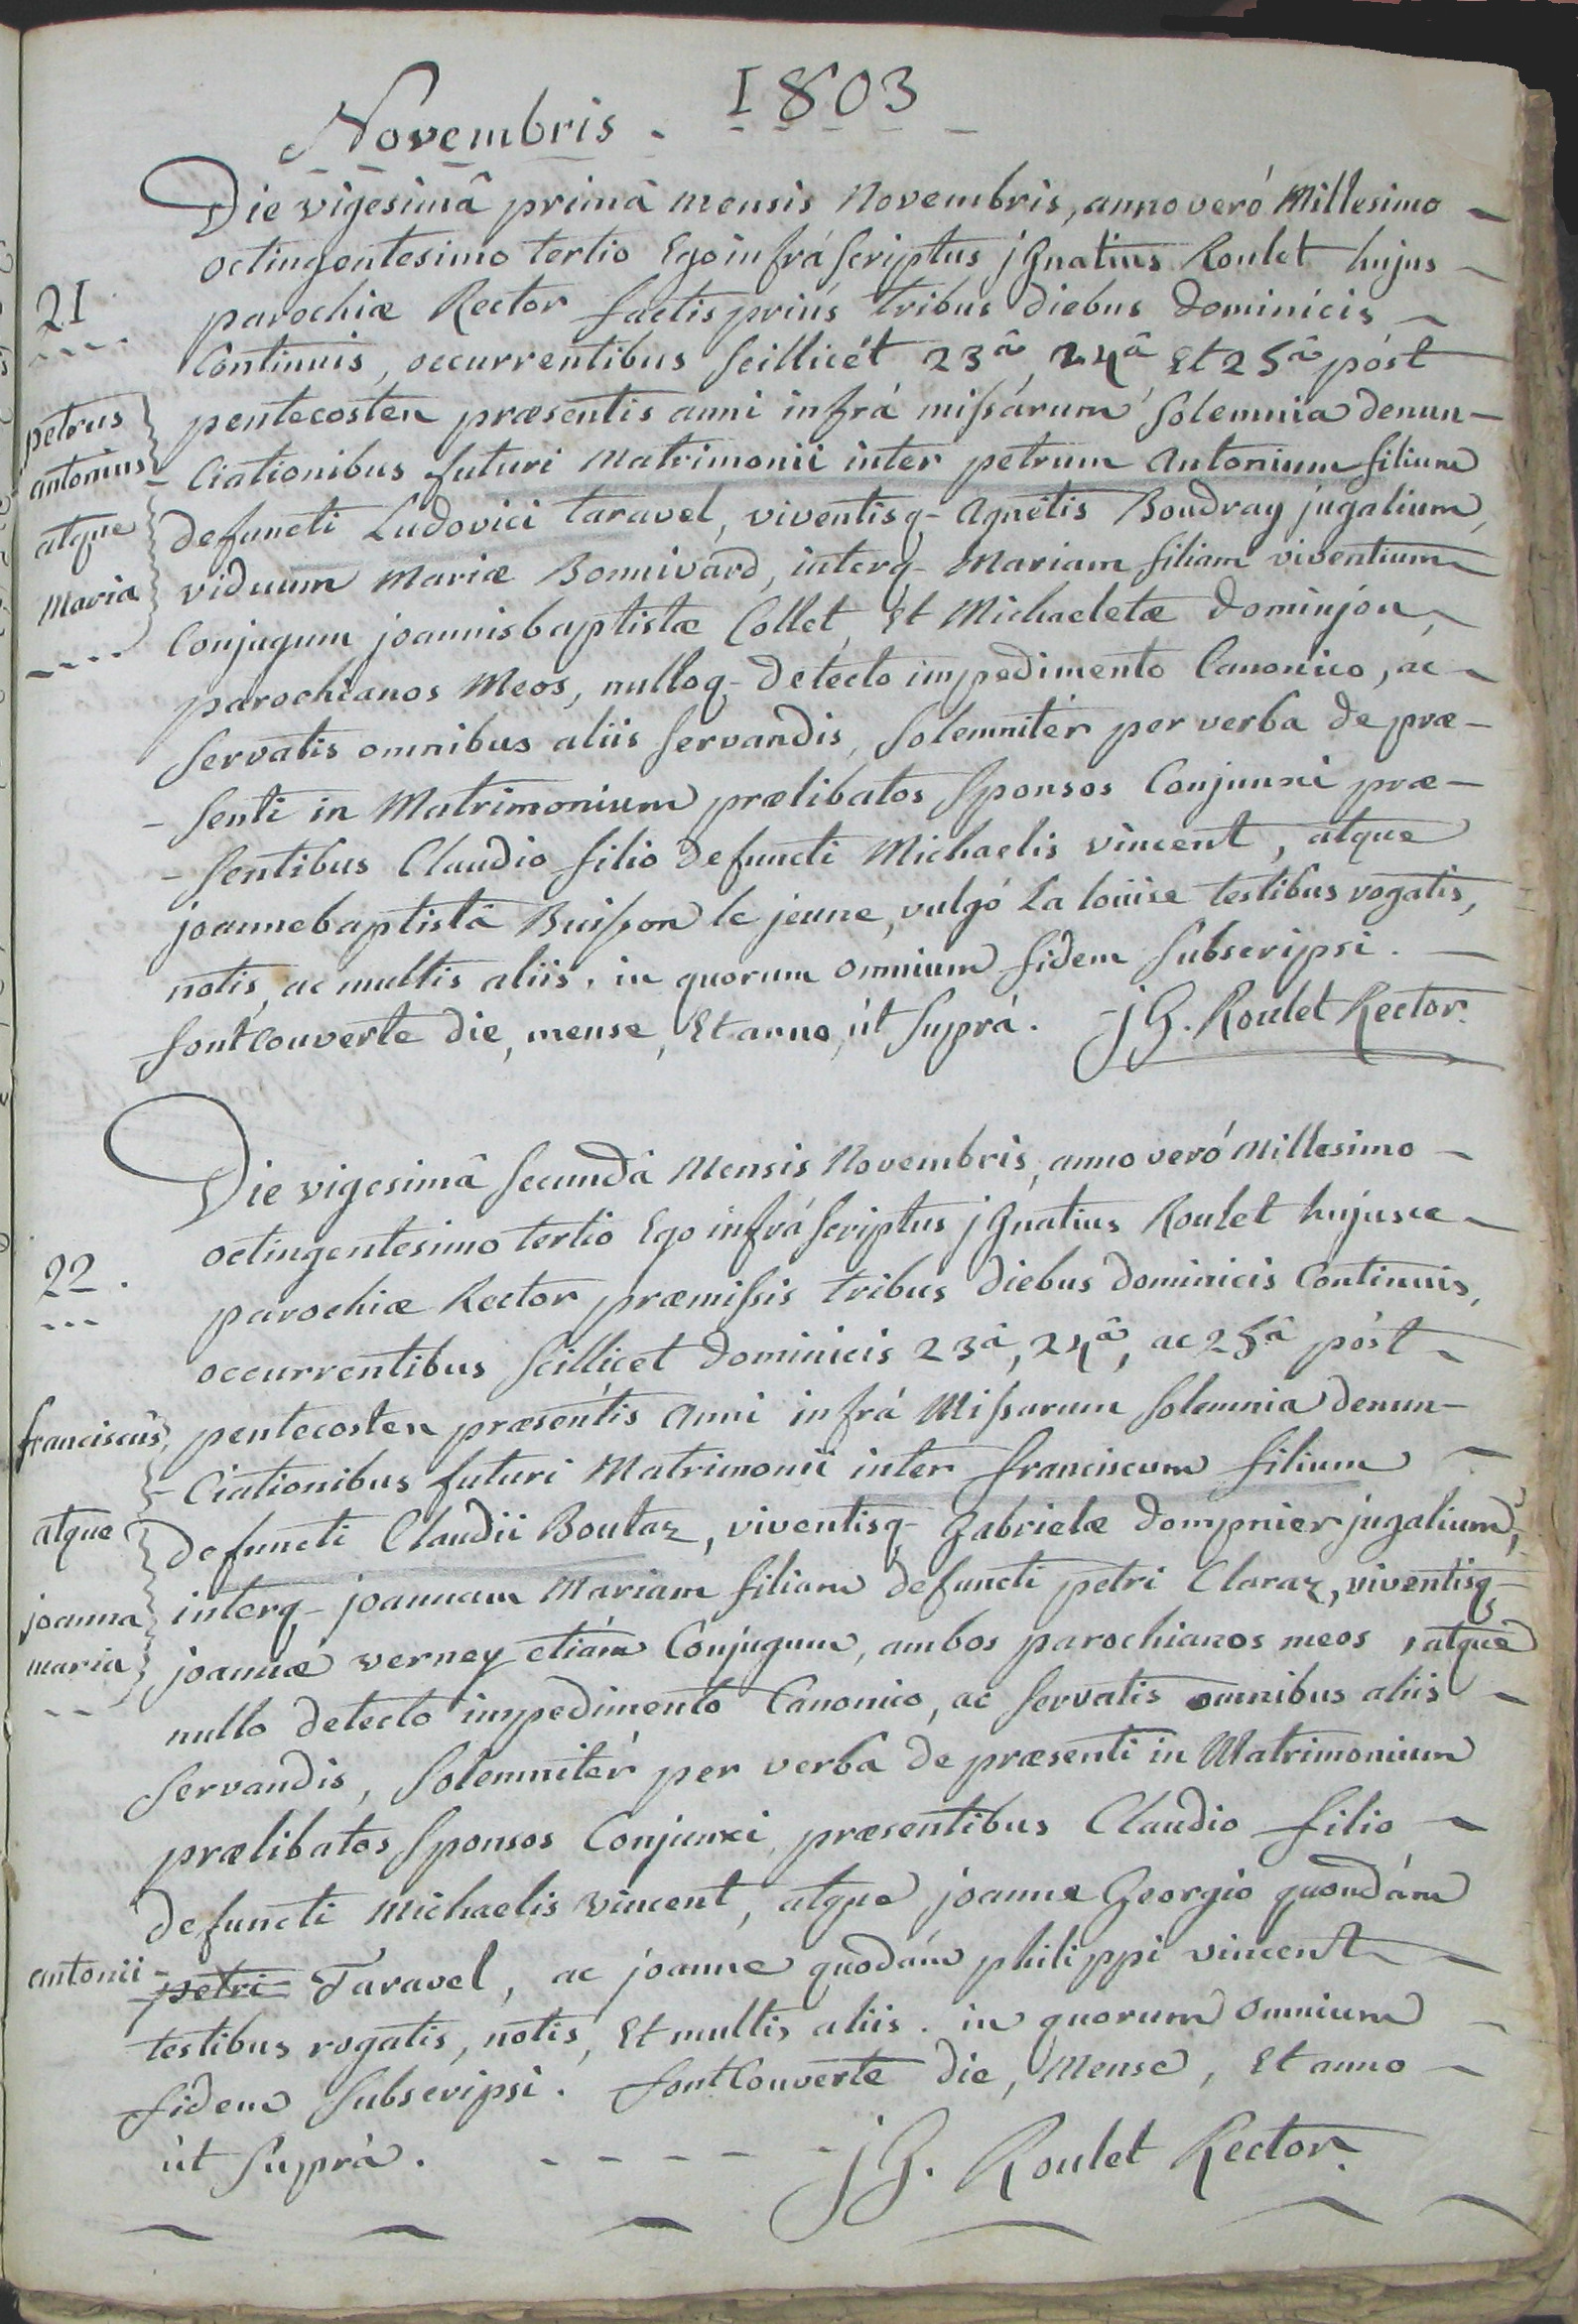 Novembris. 1803
Die vigesimâ primâ mensis Novembris, anno veró Millesimo
octingentesimo tertio Ego infrá scriptus jGnatius Roulet hujus
21
parochiæ Rector factis priús tribus diebus dominicis
Continuis, occurrentibus scillicét 23â, 24â Et 25â póst
petrus
pentecosten præsentis anni infrá missárum solemnia denun-
antonius
-Ciationibus futuri Matrimonii inter petrum Antonium filium
atque
defuncti Ludovici taravel, viventisq- Agnetis Boudray jugalium,
Maria
viduum Mariæ Bonnivard, interq- Mariam filiam viventium
Conjugum joannisbaptistæ Collet, Et Michaeletæ dominjon,
parochianos Meos, nulloq- detecto impedimento Canonico, ac
servatis omnibus aliis servandis, solemnitér per verba de præ-
-senti in Matrimonium prælibatos sponsos Conjunxi præ-
-sentibus Claudio filio defuncti Michaelis vincent, atque
joannebaptistâ Buisson le jeune, vulgó La loüise testibus rogatis,
notis, ac multis aliis. in quorum omnium fidem subscripsi.
fontCouverte die, mense, Et anno, út suprá. jG. Roulet Rector.
Die vigesimâ secundâ Mensis Novembris, anno veró Millesimo
octingentesimo tertio Ego infrá scriptus jGnatius Roulet hujusce
22.
parochiæ Rector præmissis tribus diebus dominicis Continuis,
occurrentibus scillicet dominicis 23â, 24â, ac 25â póst
franciscus,
pentecosten præsentis Anni infrá Missarum solemnia denun-
-Ciationibus futuri Matrimonii inter franciscum filium
atque
defuncti Claudii Boutaz, viventisq- Gabrielæ dompnier jugalium,
joanna
interq- joannam Mariam filiam defuncti petri Claraz, viventisq-
maria
joannæ verney etiám Conjugum, ambos parochianos meos, atque
nullo detecto impedimento Canonico, ac servatis omnibus aliis
servandis, solemnitér per verba de præsenti in Matrimonium
prælibatos sponsos Conjunxi, præsentibus Claudio filio
defuncti Michaelis vincent, atque joanne Georgio quondám
antonii- petri- Taravel, ac joanne quodám philippi vincent
testibus rogatis, notis, Et multis aliis. in quorum omnium
fidem subscripsi. fontCouverte die, Mense, Et anno
út suprá. - - - - - jG. Roulet Rector.